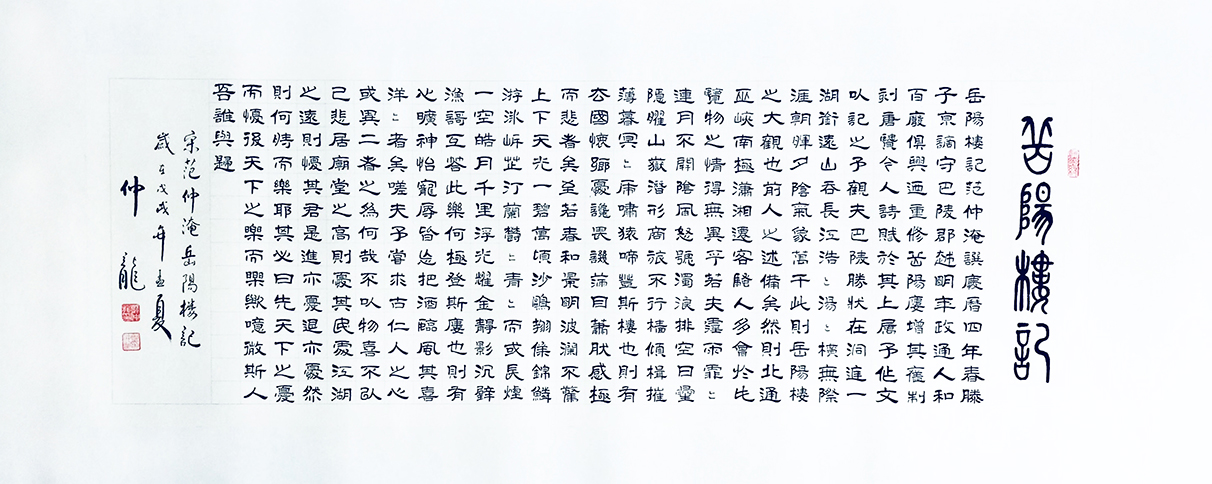 岳陽樓記
岳陽樓記范仲淹譔慶曆四年春滕
子京謫守巴陵郡越明年政通人和
百廢俱興迺重修岳陽廔增其舊制
刻唐賢今人詩賦於其上屬予作文
以記之予觀夫巴陵勝狀在洞庭一
湖銜遠山吞長江浩〻湯〻橫無際
涯朝煇夕陰氣象萬千此則岳陽樓
之大觀也前人之述備矣然則北通
巫峽南極瀟湘遷客騷人多會於此
覽物之情得無異乎若夫霪雨霏〻
連月不開陰風怒號濁浪排空日星
隱燿山嶽潛形商旅不行檣傾楫摧
薄暮冥〻虎嘯猿啼登斯樓也則有
去國懷鄉憂讒畏譏滿目蕭然感極
而悲者矣至若春和景明波瀾不驚
上下天光一碧萬頃沙鷗翔集錦鱗
游泳岸芷汀蘭鬱〻青〻而或長煙
一空皓月千里浮光耀金靜影沉璧
漁謌互答此樂何極登斯廔也則有
心曠神怡寵辱皆忘把酒臨風其喜
洋〻者矣嗟夫予嘗求古仁人之心
或異二者之為何哉不以物喜不以
己悲居廟堂之高則憂其民處江湖
之遠則憂其君是進亦憂退亦憂然
則何時而樂耶其必曰先天下之憂
而憂後天下之樂而樂歟噫微斯人
吾誰與歸
宋范仲淹岳陽樓記
歲在戊戌年孟夏
仲龍